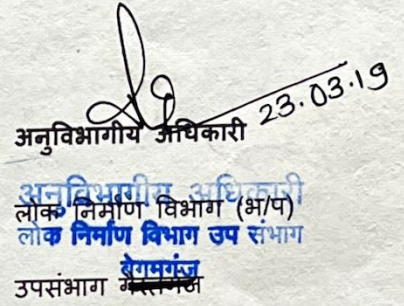 23.03.19
अनुविभागीय अधिकारी
अनुविभागीय अधिकारी
लोक निर्माण विभाग (भ/प)
लोक निर्माण विभाग उप संभाग
बेगमगंज
उपसंभाग